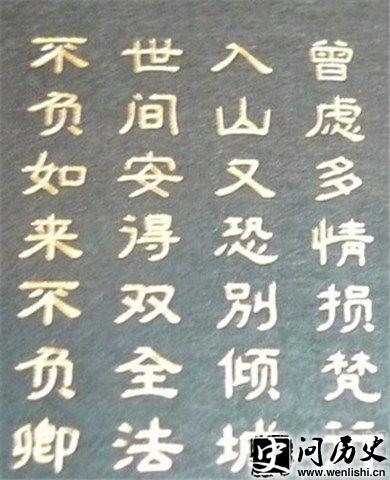 曾虑多情损梵行
入山又恐别倾城
世间安得双全法
不负如来不负卿
史 问历史
www.wenlishi.cn